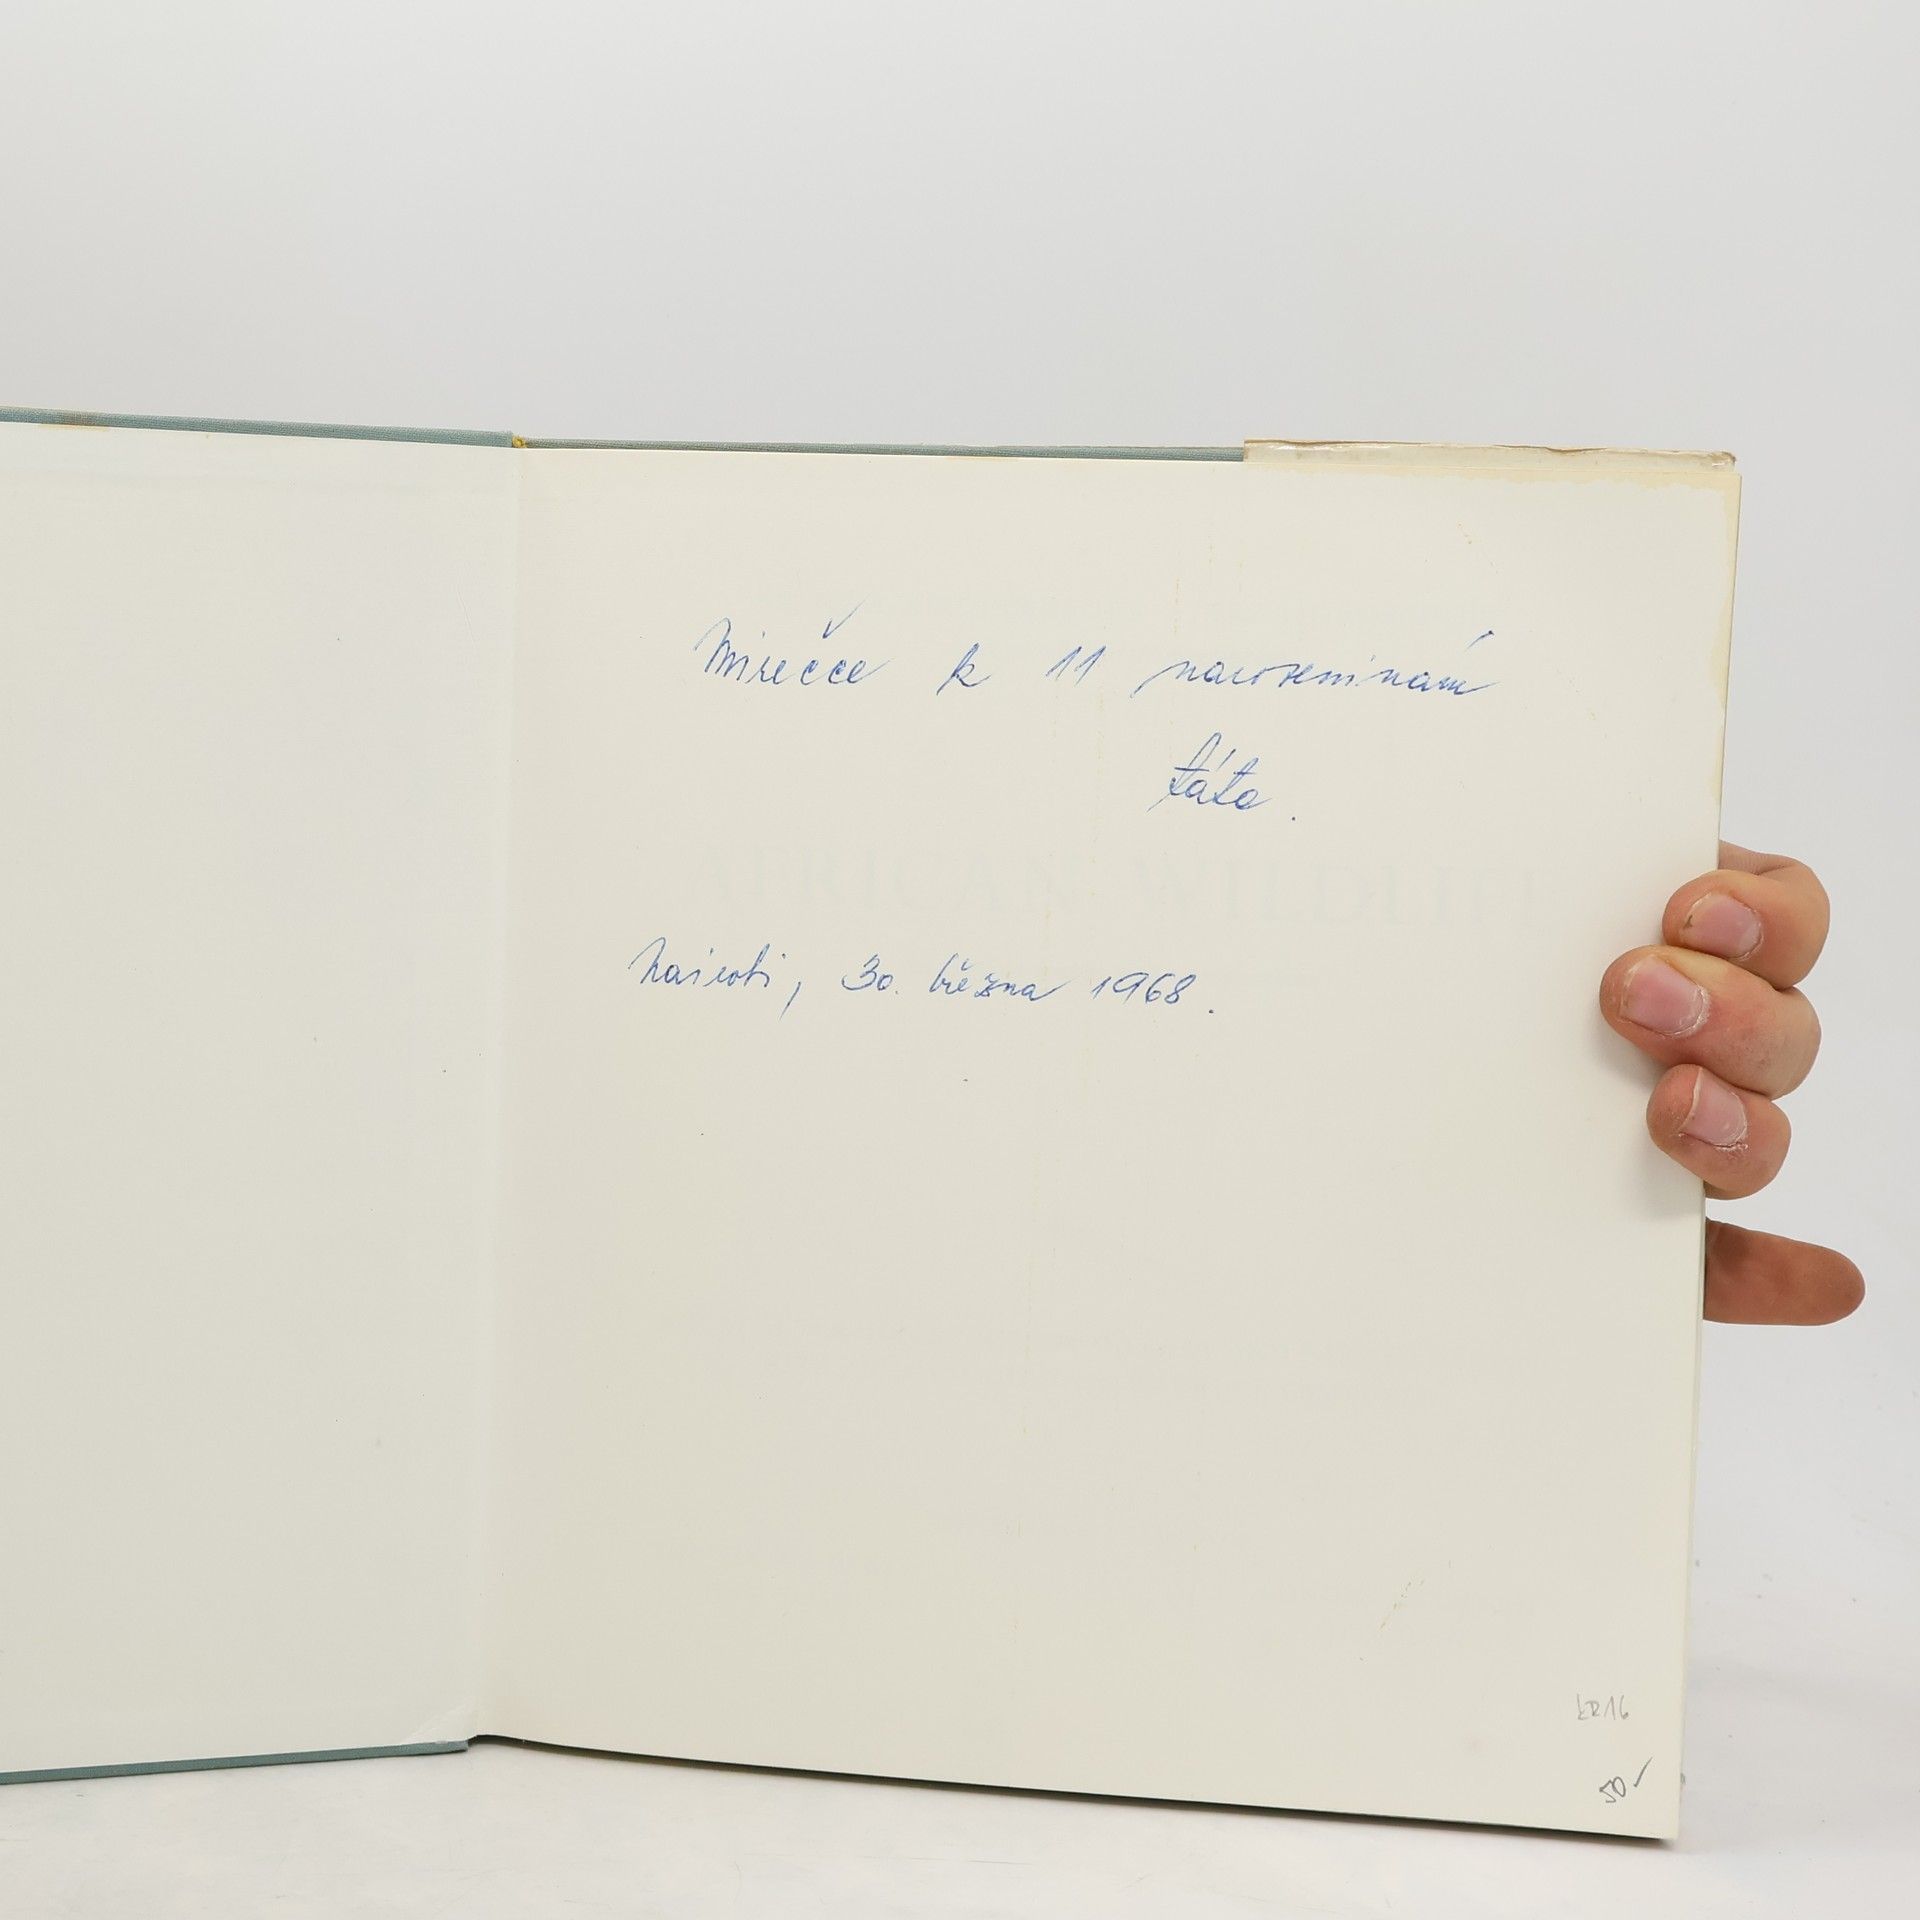 Mirečce k 11 narozeninám
táta.
AFRICAN WILDLIFE
Nairobi, 30. března 1968.
50,-